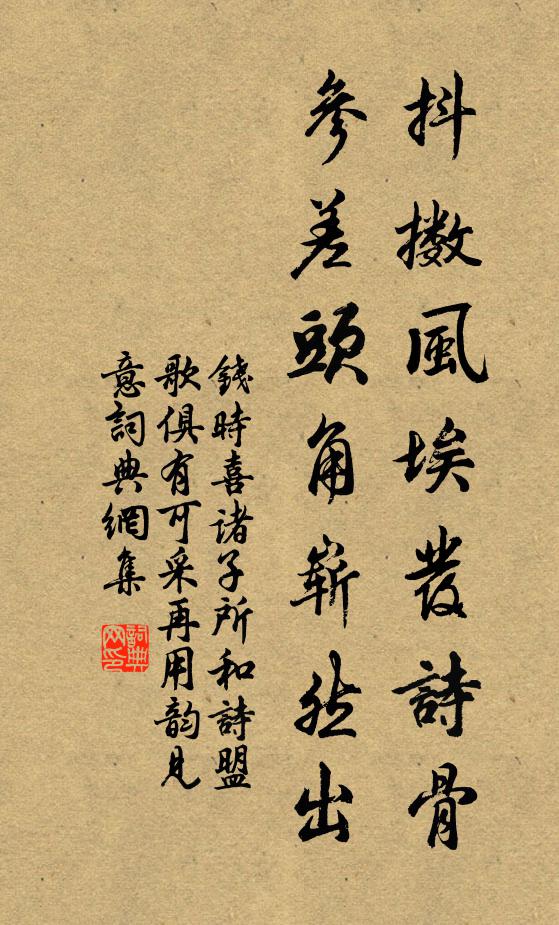 抖擻風埃發詩骨
參差頭角嶄然出
錢時喜諸子所和詩盟
歌俱有可采再用韵見
意詞典網集
詞典网印